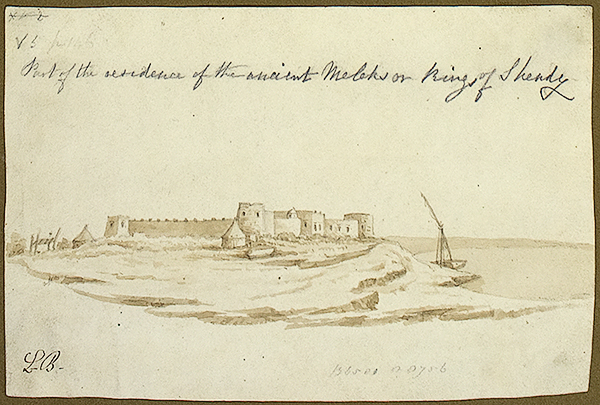 Part of the residence of the ancient Meleks or Kings of Shendy
L.B.